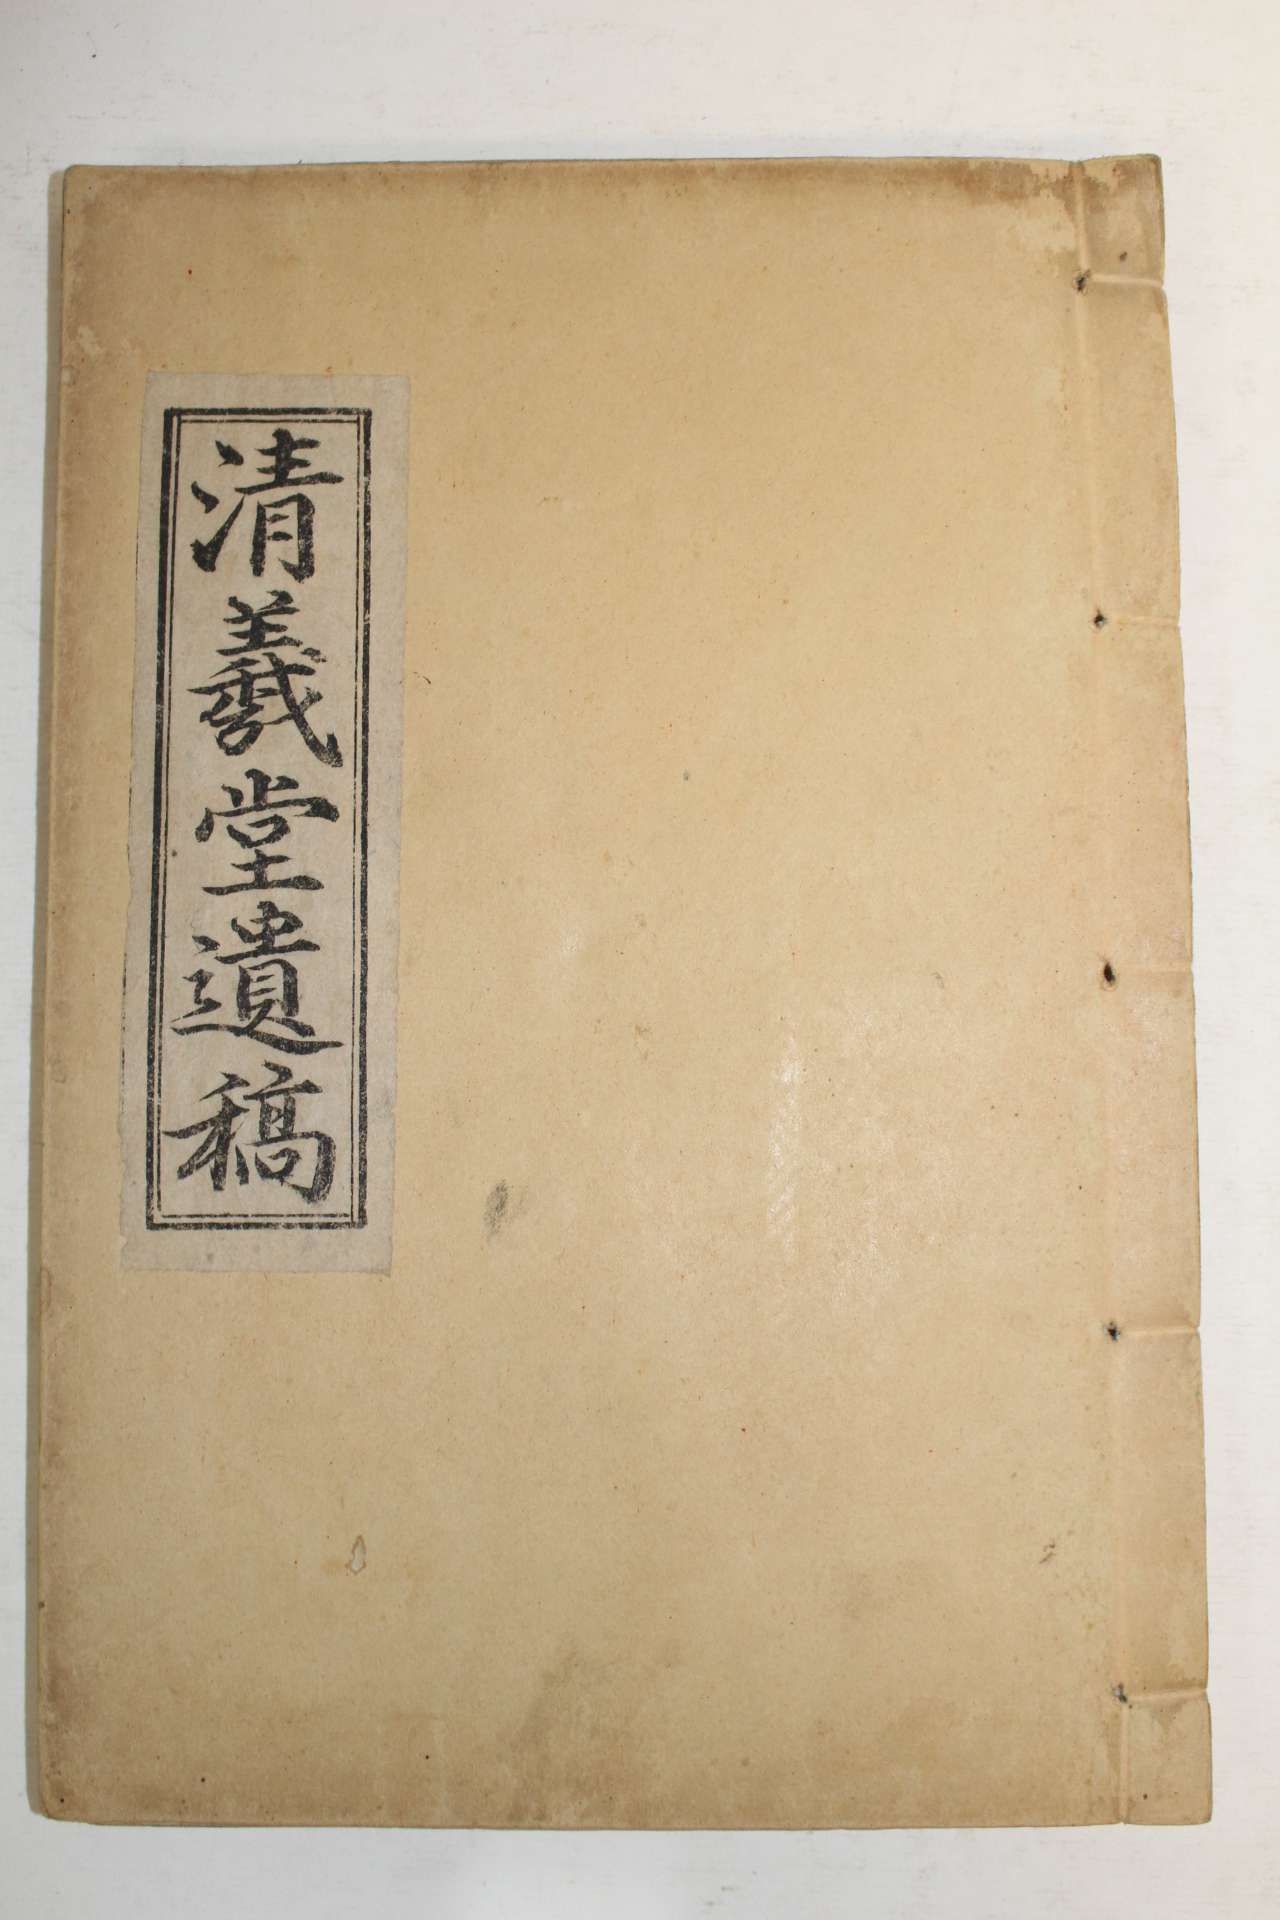 清羲堂遺稿